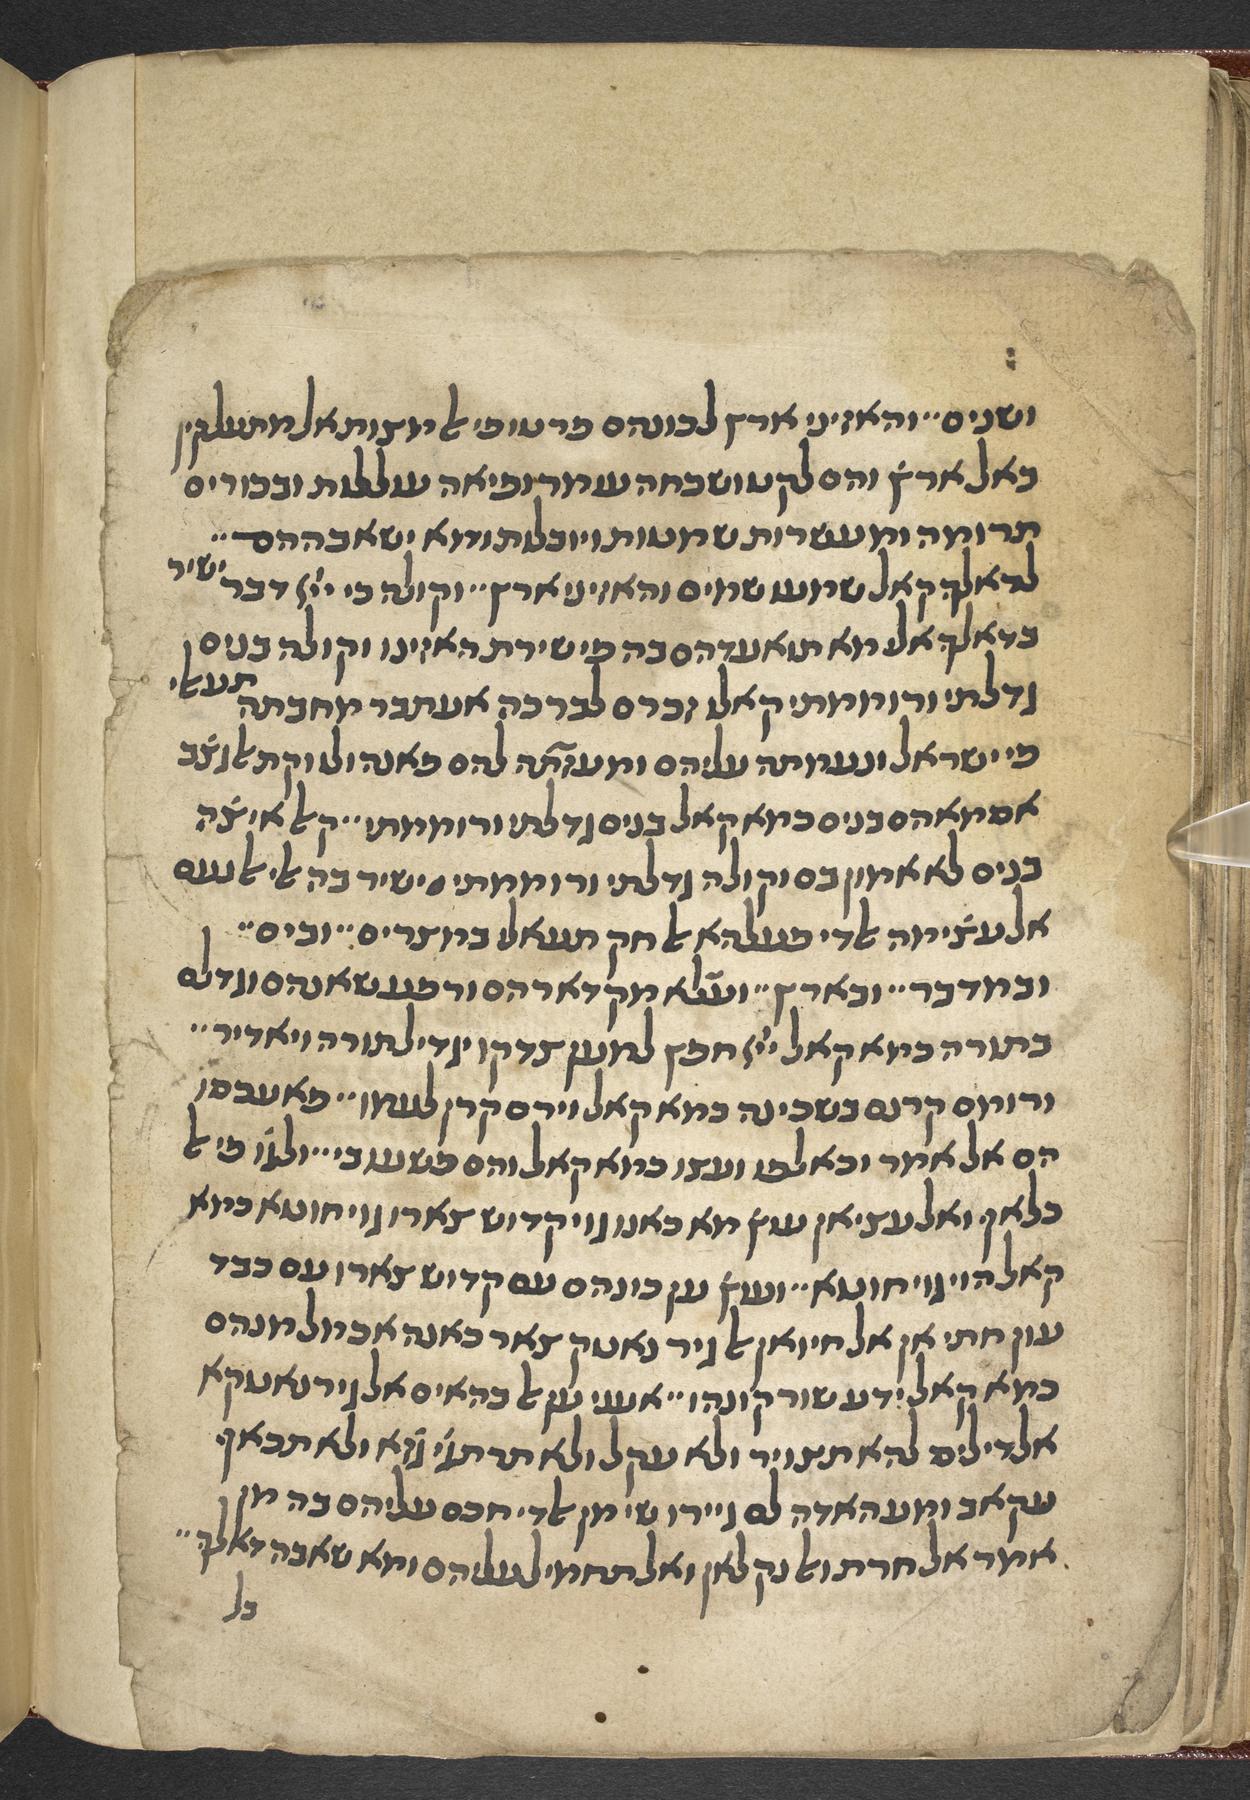 ושנים״ והאזיני ארץ לכונהם פרטו פי אלמצות אלמתעלקין
באלארץ̇ והם לקט ושכחה עומר ופיאה עוללות ובכורים
תרומה ומעשרות שמטות ויובלות ומא ישאבההם״
לדאלך קאל שמעו שמים והאזיני ארץ״ וקולה כי ייי דבר ישיר
בדאלך אלי מא תואעדהם בה פי שירת האזינו וקולה בנים
גדלתי ורוממתי קאל זכרם לברכה אעתבר מחבתה תעאלי
פי ישראל ונעמתה עליהם ומעזתה להם פאנה ולו וקת אלגצ̇ב
אסמאהם בנים כמא קאל בנים גדלתי ורוממתי״ קאל איצ̇ה
בנים לא אמון בם וקולה גדלתי ורוממתי ישיר בה אלי אלנעם
אלעצ̇ימה אלדי פעלהא אלחק תעאלי במצרים״ ובים״
ובמדבר״ ובארץ״ ועלא מקדארהם ורפע שאנהם וגדלם
בתורה כמא קאל ייי חפץ למען צדקו יגדיל תורה ויאדיר״
ורומם קרנם בשכינה כמא קאל וירם קרן לעמו״ פאעכסו
הם אלאמר וכאלפו ועצו כמא קאל והם פשעו בי״ ולגו פי אל
כלאף ואלעציאן עוץ̇ מא כאנו גוי קדוש צארו גוי חוטא כמא
קאל הוי גוי חוטא״ ועוץ̇ ען כונהם עם קדוש צארו עם כבד
עון חתי אן אלחיואן אלגיר נאטק צאר כאנה אכמל מנהם
כמא קאל ידע שור קונהו״ אעני ען אלבהאים אלגיר נאטקא
אלדי ליס להא תצויר ולא עקל ולא תרתגי גזא ולא תכאף
עקאב ומע האדה לם גיירו שי מן אלדי חכם עליהם בה מן
אמר אלחרת ולנקלאן ואלתחמיל עליהם ומא שאבה דאלך״
כל